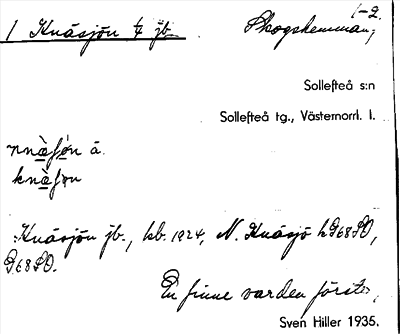 1 Knäsjön 1/4 jb. Skogshemman, 1-2.
Sollefteå s:n
Sollefteå tg., Västernorrl. l.
knä̀ʃọn
Knäsjön jb., kb. 1924, N. Knäsjö hG68SO,
G68SO.
En finne var den förste,
Sven Hiller 1935.